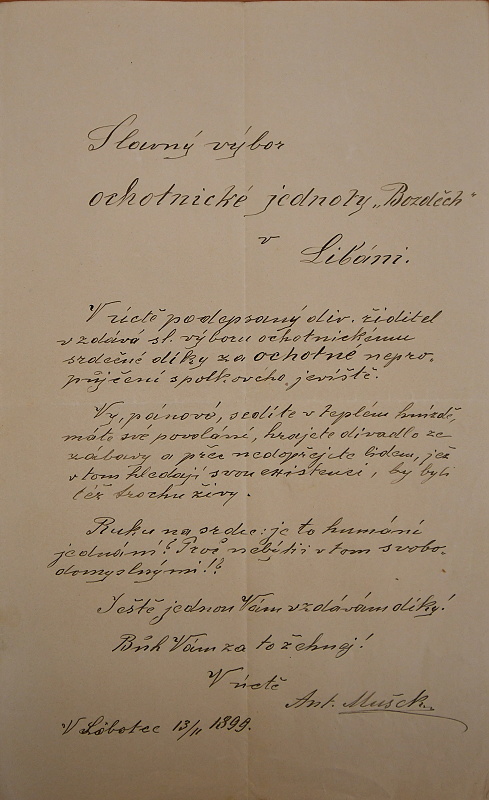 Slavný výbor
ochotnické jednoty „Bozděch“
v
Libáni.
V úctě podepsaný div. řiditel
vzdává sl. výboru ochotnickému
srdečné díky za ochotné nepro-
půjčení spolkového jeviště.
Vy, pánové, sedíte v teplém hnízdě,
máte své povolání, hrajete divadlo ze
zábavy a přec nedopřejete lidem, jež
v tom hledají svou existenci, by byli
též trochu živy.
Ruku na srdce: je to humání
jednání? Proč nebýti v tom svobo-
domyslnými!?
Ještě jednou Vám vzdávám díky!
Bůh Vám za to žehnej!
V úctě
Ant. Mušek.
V 13/II 1899.